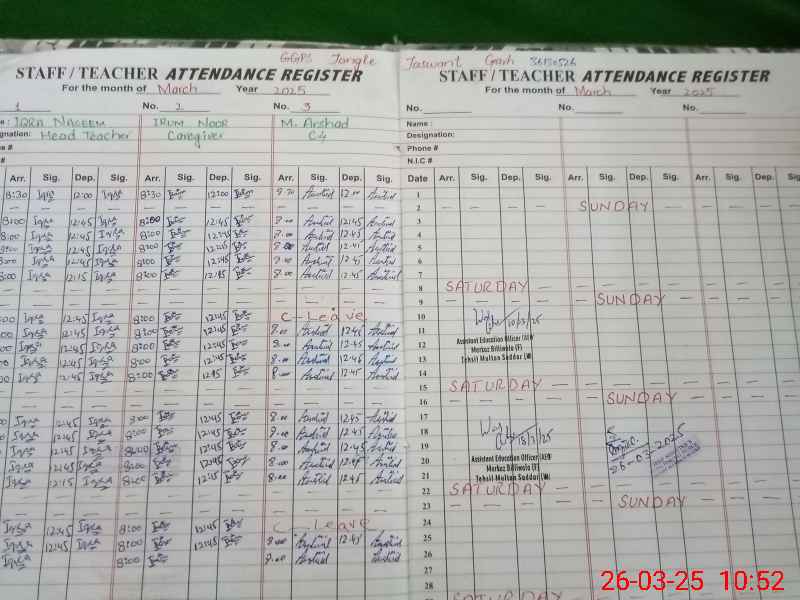 GGPS Jangle Jaswant Garh 36130526
STAFF / TEACHER ATTENDANCE REGISTER
For the month of March Year 2025
1 No. 2 No. 3
IQRA NAEEM IRUM NOOR M. Arshad
Head Teacher Caregiver C4
Arr. Sig. Dep. Sig. Arr. Sig. Dep. Sig. Arr. Sig. Dep. Sig.
8:30 Iqra 12:00 Iqra 8:30 12:00 8.30 Arshad 12.00 Arshad
8:00 Iqra 12:45 Iqra 8:00 12:45 8.00 Arshad 12.45 Arshad
8:00 Iqra 12:45 Iqra 8:00 12:45 8.00 Arshad 12.45 Arshad
8:00 Iqra 12:45 Iqra 8:00 12:45 8.00 Arshad 12.45 Arshad
8:00 Iqra 12:45 Iqra 8:00 12:45 8.00 Arshad 12.45 Arshad
8:00 Iqra 12:15 Iqra 8:00 12:15 8.00 Arshad 12.45 Arshad
Iqra 12:45 Iqra 8:00 12:45 C-Leave
Iqra 12:45 Iqra 8:00 12:45 8.00 Arshad 12.45 Arshad
Iqra 12:45 Iqra 8:00 12:45 8.00 Arshad 12.45 Arshad
Iqra 12:45 Iqra 8:00 12:45 8.00 Arshad 12.45 Arshad
Iqra 12:45 Iqra 8:00 12:15 8.00 Arshad 12.45 Arshad
Iqra 12:45 Iqra 8:00 12:45 8.00 Arshad 12.45 Arshad
Iqra 12:45 Iqra 8:00 12:45 8.00 Arshad 12.45 Arshad
Iqra 12:45 Iqra 8:00 12:45 8.00 Arshad 12.45 Arshad
Iqra 12:45 Iqra 8:00 12:45 8.00 Arshad 12.45 Arshad
Iqra 12:15 Iqra 8:00 12:15 8.00 Arshad 12.45 Arshad
Iqra 12:45 Iqra 8:00 12:45 C-Leave
Iqra 12:45 Iqra 8:00 12:45 8.00 Arshad 12.45 Arshad
Iqra 8:00 8.00 Arshad
STAFF / TEACHER ATTENDANCE REGISTER
For the month of March Year 2025
No. No. No.
Name :
Designation:
Phone #
N.I.C #
Date Arr. Sig. Dep. Sig. Arr. Sig. Dep. Sig. Arr. Sig. Dep.
1
2 SUNDAY
3
4
5
6
7
8 SATURDAY
9 SUNDAY
10
11 10/3/25
12 Assistant Education Officer (AEO)
Markaz Billiwala (F)
13 Tehsil Multan Saddar (M)
14
15 SATURDAY
16 SUNDAY
17
18 18/3/25
19
20 Assistant Education Officer (AEO)
Markaz Billiwala (F)
21 Tehsil Multan Saddar (M)
26-03-2025
22 SATURDAY
23 SUNDAY
24
25
26
27
28
SATURDAY
26-03-25 10:52